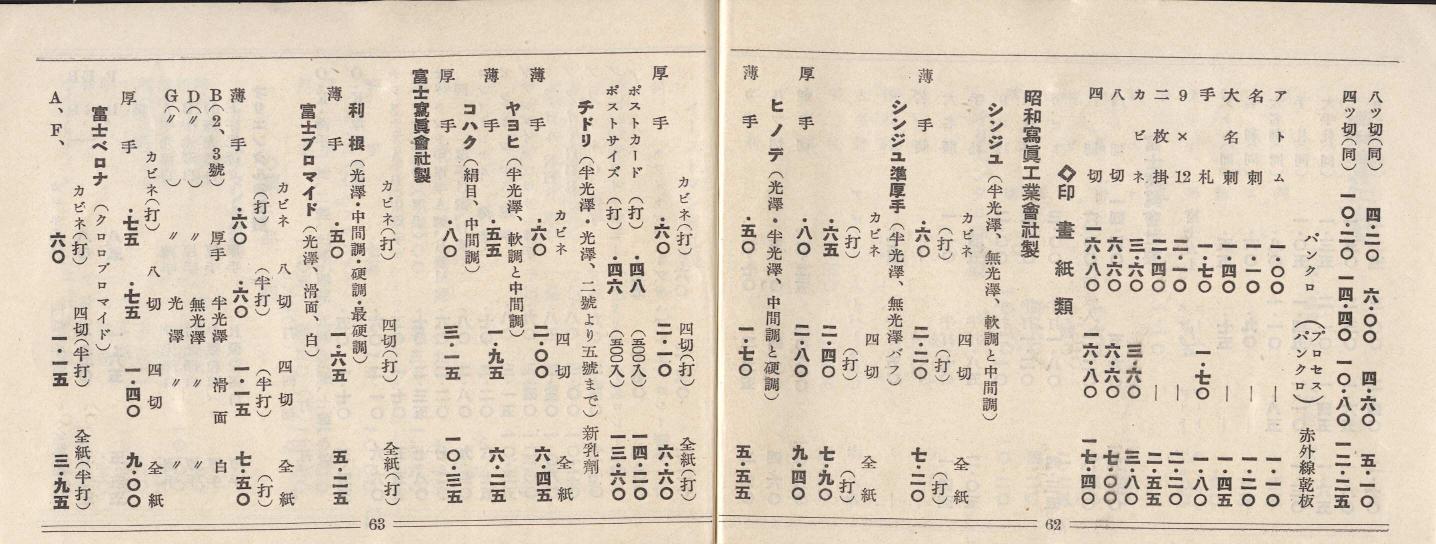 八ツ切(同) 四・二〇 六・〇〇 四・六〇 五・一〇
四ツ切(同) 一〇・二〇 一四・四〇 一〇・八〇 一二・二五
パンクロ (プロセスパンクロ) 赤外線乾板
アトム 一・〇〇 — 一・一〇
名刺 一・一〇 — 一・二〇
大名刺 一・四〇 — 一・四五
手札 一・七〇 一・七〇 一・八〇
9×12 二・一〇 — 二・二〇
二枚掛 二・四〇 — 二・五五
カビネ 三・六〇 三・六〇 三・八〇
八切 六・六〇 六・六〇 七・〇〇
四切 一六・八〇 一六・八〇 一七・四〇
◇印畫紙類
昭和寫眞工業會社製
シンジュ(半光澤、無光澤、軟調と中間調)
カビネ(打) 四切(打) 全紙(打)
薄手 ・六〇 二・二〇 七・二〇
シンジュ準厚手(半光澤、無光澤バフ)
カビネ(打) 四切(打) 全紙(打)
・六五 二・四〇 七・九〇
厚手 ・八〇 二・八〇 九・四〇
ヒノデ(光澤・半光澤・中間調と硬調)
薄手 ・五〇 一・七〇 五・五五
62
カビネ(打) 四切(打) 全紙(打)
厚手 ・六〇 二・一〇 六・六〇
ポストカード(打) ・四八 (五〇〇入) 一四・二〇
ポストサイズ(打) ・四六 (五〇〇入) 一三・六〇
チドリ(半光澤・光澤、二號より五號まで)新乳劑
カビネ 四切 全紙
薄手 ・六〇 二・〇〇 六・四五
ヤヨヒ(半光澤、軟調と中間調)
薄手 ・五五 一・九五 六・二五
コハク(絹目、中間調)
厚手 ・八〇 三・一五 一〇・三五
富士寫眞會社製
カビネ(打) 四切(打) 全紙(打)
利根(光澤・中間調・硬調・最硬調)
薄手 ・五〇 一・六五 五・二五
富士ブロマイド(光澤、滑面、白)
カビネ(打) 八切(半打) 四切(半打) 全紙(打)
薄手 ・六〇 ・六〇 一・一五 七・五〇
B(2、3號) 厚手 半光澤 滑面 白
D(〃) 〃 無光澤 〃 〃
G(〃) 〃 光澤 〃 〃
カビネ(打) 八切 四切 全紙
厚手 ・七五 ・七五 一・四〇 九・〇〇
富士ベロナ(クロロブロマイド)
カビネ(打) 四切(半打) 全紙(半打)
A、F、 ・六〇 一・一五 三・九五
63